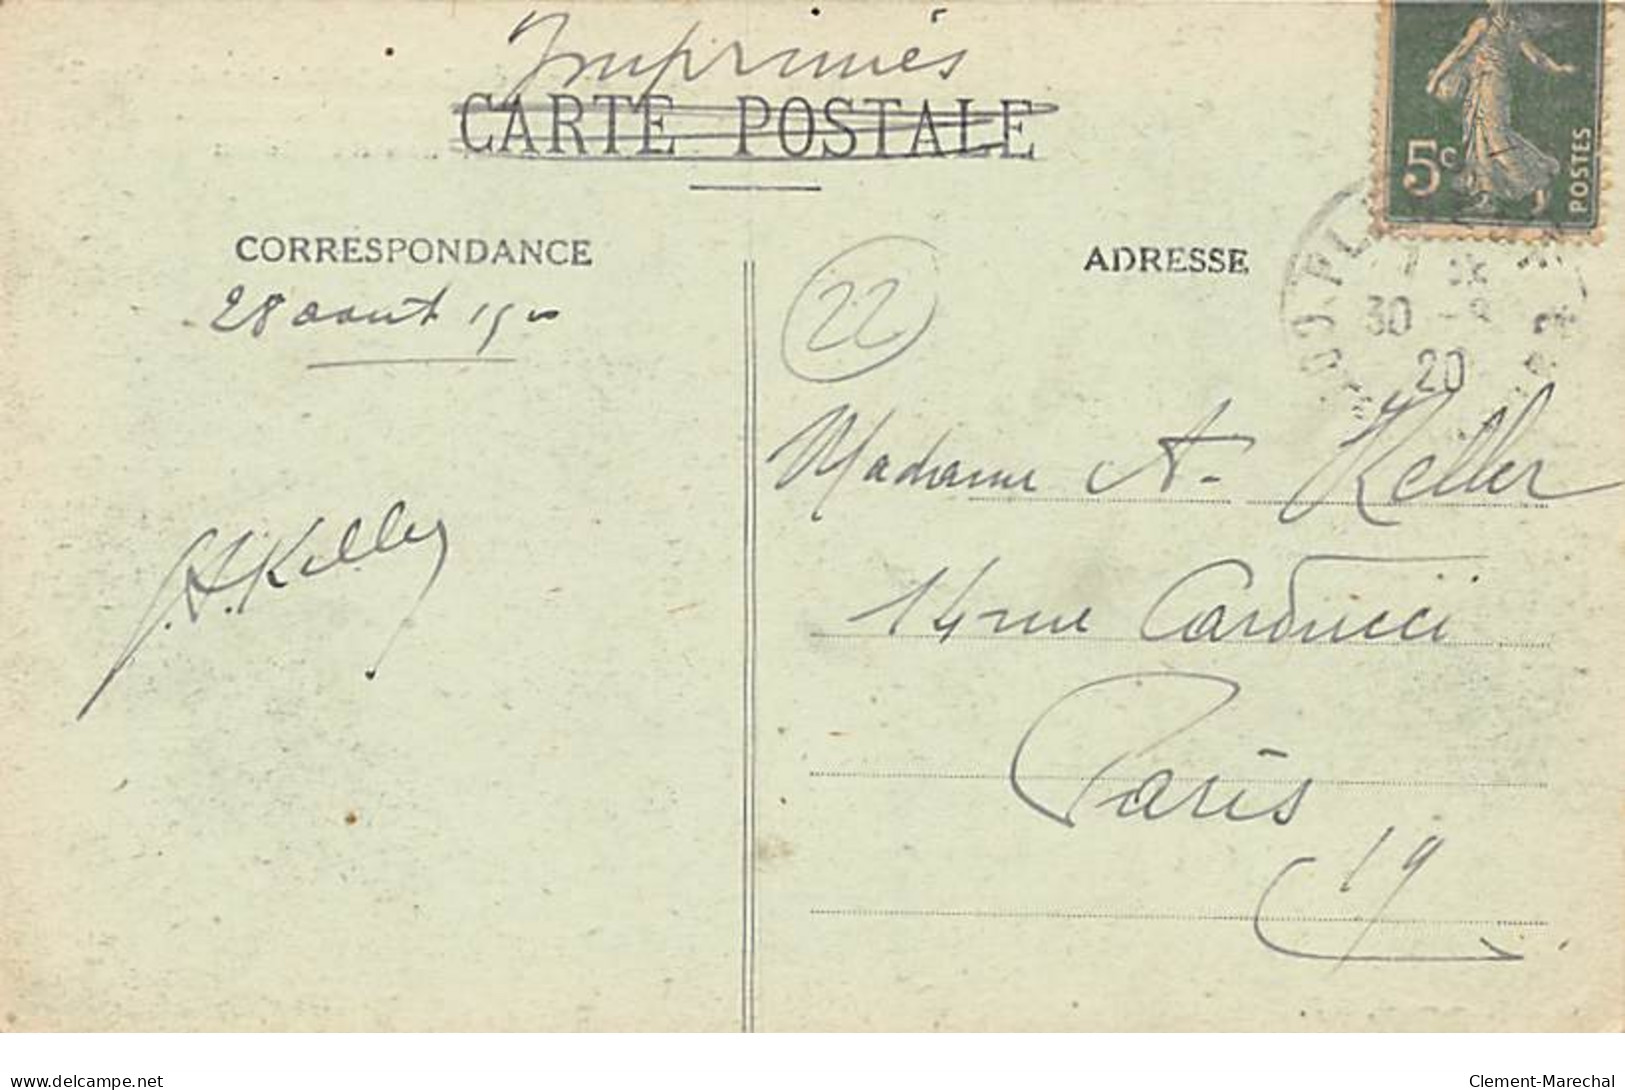 Imprimés
CARTE POSTALE
5c
POSTES
CORRESPONDANCE
ADRESSE
28 aout
22
30
20
Madame A. Keller
J. A. Keller
14 rue Carducci
Paris
19
delcampe.net
Clement-Marechal